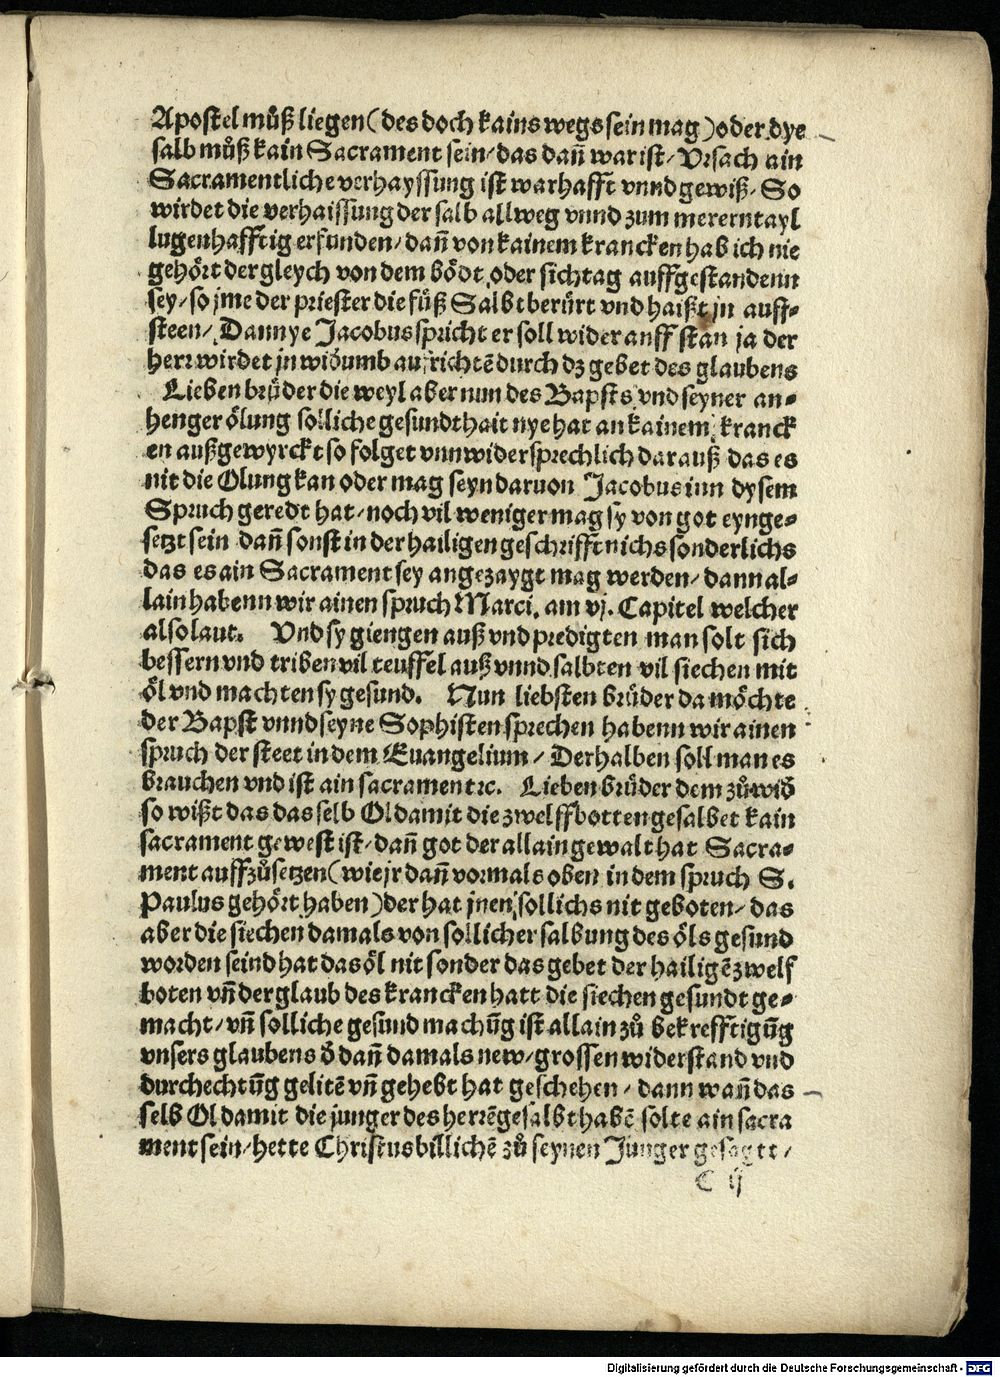 Apostel můß liegen (des doch kains wegs sein mag) oder dye
salb můß kain Sacrament sein / das dañ war ist / Vrsach ain
Sacramentliche verhayssung ist warhafft vnnd gewiß / So
wirdet die verhaissung der salb allweg vnnd zum merern tayl
lugenhafftig erfunden / dañ von kainem krancken hab ich nie
gehört der gleych von dem bödt oder sichtag auffgestandenn
sey / so jme der priester die füß Salbt berürt vnd haißt jn auff-
steen / Dann ye Jacobus spricht er soll wider auff stan ja der
herr wirdet jn widumb aufrichtē durch dz gebet des glaubens
Lieben brüder die weyl aber nun des Bapsts vnd seyner an-
henger ölung solliche gesundthait nye hat an kainem kranck
en außgewyrckt so folget vnnwidersprechlich darauß das es
nit die Ölung kan oder mag seyn daruon Jacobus inn dysem
Spruch geredt hat / noch vil weniger mag sy von got eynge-
setzt sein dañ sonst in der hailigen geschrifft nichs sonderlichs
das es ain Sacrament sey angezaygt mag werden / dann al-
lain habenn wir ainen spruch Marci. am vj. Capitel welcher
also laut. Vnd sy giengen auß vnd predigten man solt sich
bessern vnd triben vil teuffel auß vnnd salbten vil siechen mit
öl vnd machten sy gesund. Nun liebsten brüder da möchte
der Bapst vnnd seyne Sophisten sprechen habenn wir ainen
spruch der steet in dem Euangelium / Derhalben soll man es
brauchen vnd ist ain sacrament ꝛc. Lieben brüder dem zů wið
so wißt das das selb Öl damit die zwelffbotten gesalbet kain
sacrament gewest ist / dañ got der allain gewalt hat Sacra-
ment auff zůsetzen (wie jr dañ vormals oben in dem spruch S.
Paulus gehört haben) der hat jnen sollichs nit geboten / das
aber die siechen damals von sollicher salbung des öls gesund
worden seind hat das öl nit sonder das gebet der hailigē zwelf
boten vñ der glaub des krancken hatt die siechen gesundt ge-
macht / vñ solliche gesund machūg ist allain zů bekrefftigūg
vnsers glaubens ð dañ damals new / grossen widerstand vnd
durchechtūg gelitē vñ gehebt hat geschehen / dann wañ das
selb Öl damit die junger des herrē gesalbt habē solte ain sacra
ment sein / hette Christus billichē zů seynen Junger gesagtt /
C ij
Digitalisierung gefördert durch die Deutsche Forschungsgemeinschaft - DFG